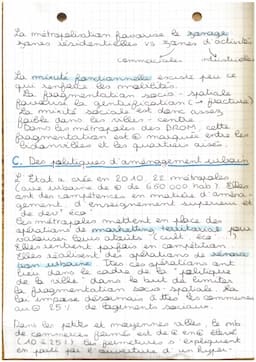 La métropolisation favorise le zonage
zones résidentielles vs zones d'activité
commerciales industrielle
La mixité fonctionnelle existe peu ce
que renforce les mobilités.
La fragmentation socio-spatiale
favorise la gentrification (→ fracture)
La mixité sociale est donc assez
faible dans les villes-centre.
Dans les métropoles des DROM, cette
fragmentation est + marquée entre les
bidonvilles et les quartiers aisés.
C. Des politiques d'aménagement urbain
L'Etat a créé en 2010 22 métropoles
(aire urbaine de + de 650 000 hab). Elles
ont des compétences en matière d'aména-
gement d'enseignement supérieur et
de dev' éco
Les métropoles mettent en place des
opérations de marketing territorial pour
valoriser leurs atouts
Elles entrent parfois en compétition.
Elles réalisent des opérations de rénova-
tion urbaine. Ces opérations ont
lieu dans le cadre de la "politique
de la ville" dans le but de limiter
la fragmentation socio spatiale. La
loi impose désormais à ttes les communes
au - 25 % de logements sociaux.
Dans les petites et moyennes villes le nb
de commerces fermés est de + en + élevé
(10 à 25 %). Ces fermetures s'expliquent
en partie par l'ouverture d'un hyper-